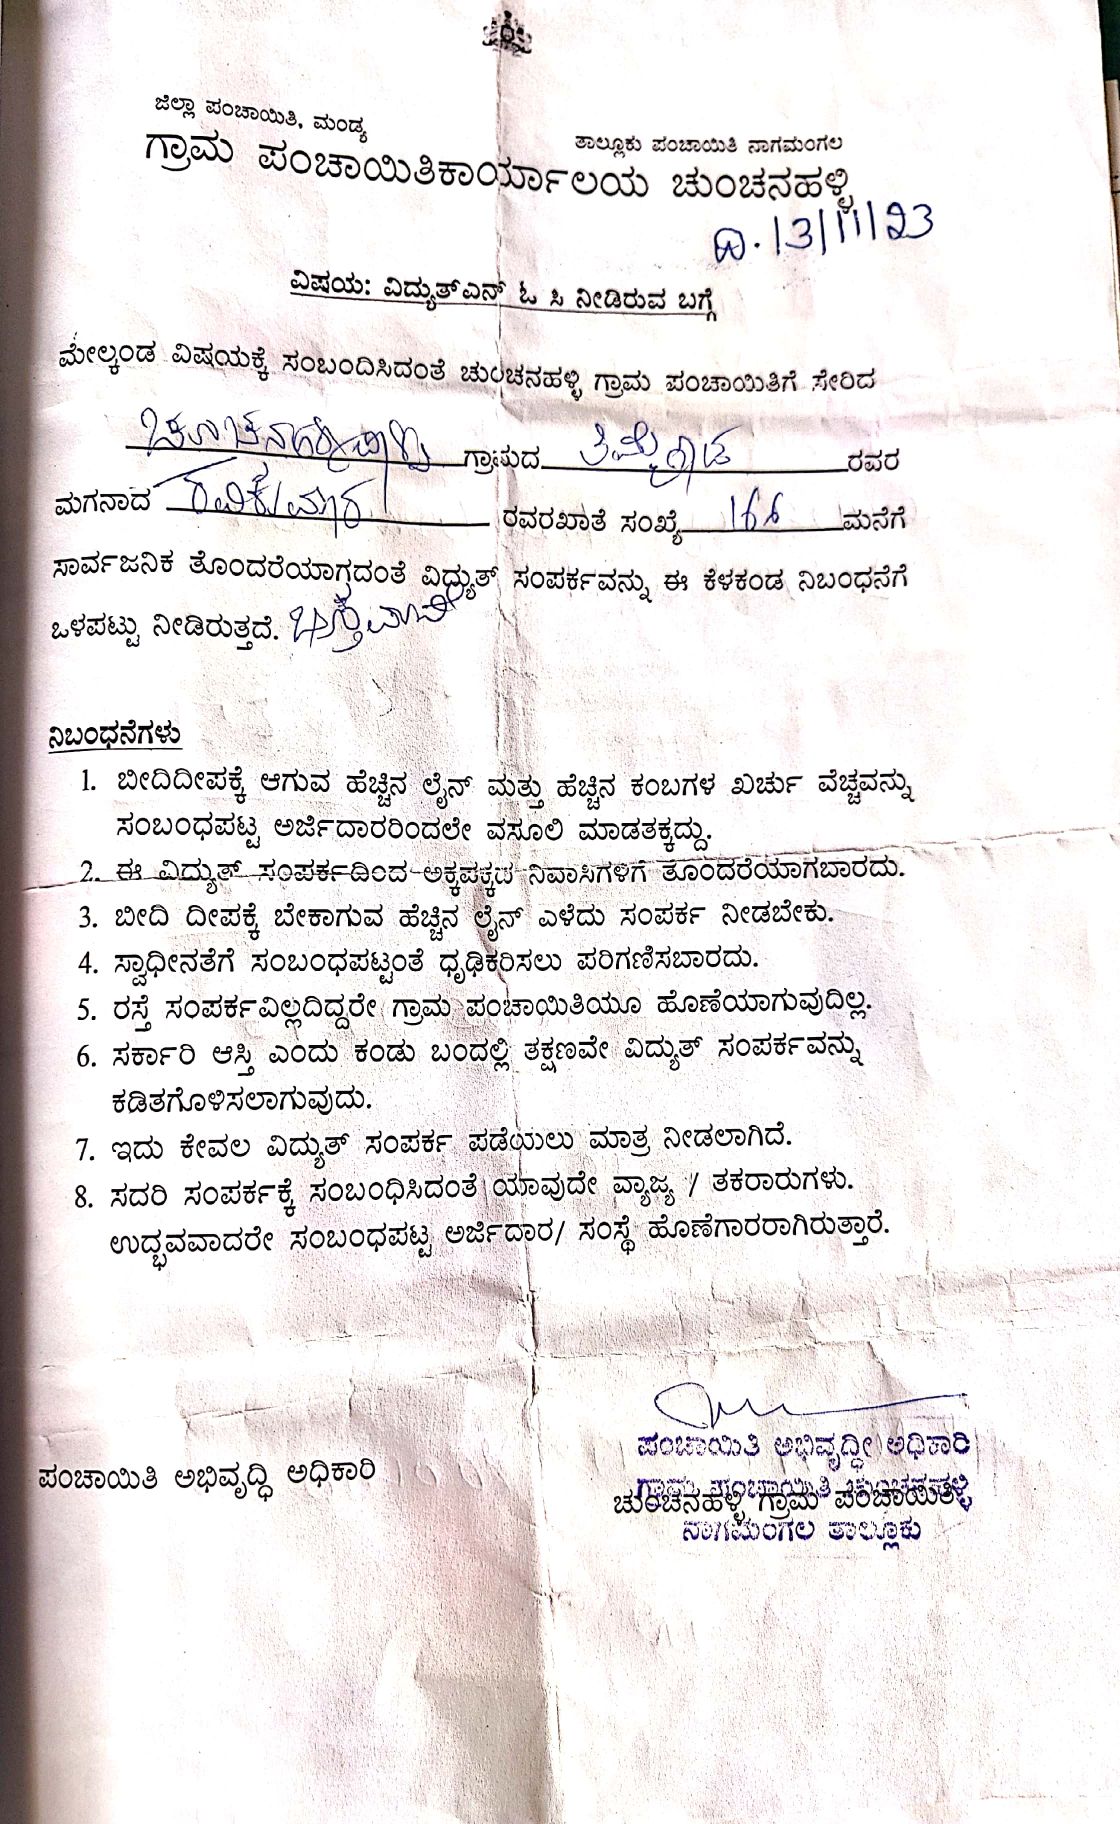 ಜಿಲ್ಲಾ ಪಂಚಾಯಿತಿ, ಮಂಡ್ಯ
ತಾಲ್ಲೂಕು ಪಂಚಾಯಿತಿ ನಾಗಮಂಗಲ
ಗ್ರಾಮ ಪಂಚಾಯಿತಿಕಾರ್ಯಾಲಯ ಚುಂಚನಹಳ್ಳಿ
ದಿ. 13/11/23
ವಿಷಯ: ವಿದ್ಯುತ್ಎನ್ ಓ ಸಿ ನೀಡಿರುವ ಬಗ್ಗೆ
ಮೇಲ್ಕಂಡ ವಿಷಯಕ್ಕೆ ಸಂಬಂದಿಸಿದಂತೆ ಚುಂಚನಹಳ್ಳಿ ಗ್ರಾಮ ಪಂಚಾಯಿತಿಗೆ ಸೇರಿದ
ಗ್ರಾಮದ ತಿಮ್ಮೇಗೌಡ ರವರ
ಮಗನಾದ ರವಿಕುಮಾರ ರವರಖಾತೆ ಸಂಖ್ಯೆ ಮನೆಗೆ
ಸಾರ್ವಜನಿಕ ತೊಂದರೆಯಾಗ್ರದಂತೆ ವಿದ್ಯುತ್ ಸಂಪರ್ಕವನ್ನು ಈ ಕೆಳಕಂಡ ನಿಬಂಧನೆಗೆ
ಒಳಪಟ್ಟು ನೀಡಿರುತ್ತದೆ.
ನಿಬಂಧನೆಗಳು
1. ಬೀದಿದೀಪಕ್ಕೆ ಆಗುವ ಹೆಚ್ಚಿನ ಲೈನ್ ಮತ್ತು ಹೆಚ್ಚಿನ ಕಂಬಗಳ ಖರ್ಚು ವೆಚ್ಚವನ್ನು
ಸಂಬಂಧಪಟ್ಟ ಅರ್ಜಿದಾರರಿಂದಲೇ ವಸೂಲಿ ಮಾಡತಕ್ಕದ್ದು.
2. ಈ ವಿದ್ಯುತ್ ಸಂಪರ್ಕದಿಂದ ಅಕ್ಕಪಕ್ಕದ ನಿವಾಸಿಗಳಿಗೆ ತೊಂದರೆಯಾಗಬಾರದು.
3. ಬೀದಿ ದೀಪಕ್ಕೆ ಬೇಕಾಗುವ ಹೆಚ್ಚಿನ ಲೈನ್ ಎಳೆದು ಸಂಪರ್ಕ ನೀಡಬೇಕು.
4. ಸ್ವಾಧೀನತೆಗೆ ಸಂಬಂಧಪಟ್ಟಂತೆ ಧೃಢಿಕರಿಸಲು ಪರಿಗಣಿಸಬಾರದು.
5. ರಸ್ತೆ ಸಂಪರ್ಕವಿಲ್ಲದಿದ್ದರೇ ಗ್ರಾಮ ಪಂಚಾಯಿತಿಯೂ ಹೊಣೆಯಾಗುವುದಿಲ್ಲ.
6. ಸರ್ಕಾರಿ ಆಸ್ತಿ ಎಂದು ಕಂಡು ಬಂದಲ್ಲಿ ತಕ್ಷಣವೇ ವಿದ್ಯುತ್ ಸಂಪರ್ಕವನ್ನು
ಕಡಿತಗೊಳಿಸಲಾಗುವುದು.
7. ಇದು ಕೇವಲ ವಿದ್ಯುತ್ ಸಂಪರ್ಕ ಪಡೆಯಲು ಮಾತ್ರ ನೀಡಲಾಗಿದೆ.
8. ಸದರಿ ಸಂಪರ್ಕಕ್ಕೆ ಸಂಬಂಧಿಸಿದಂತೆ ಯಾವುದೇ ವ್ಯಾಜ್ಯ / ತಕರಾರುಗಳು.
ಉದ್ಭವವಾದರೇ ಸಂಬಂಧಪಟ್ಟ ಅರ್ಜಿದಾರ/ ಸಂಸ್ಥೆ ಹೊಣೆಗಾರರಾಗಿರುತ್ತಾರೆ.
ಪಂಚಾಯಿತಿ ಅಭಿವೃದ್ಧೀ ಅಧಿಕಾರಿ
ಪಂಚಾಯಿತಿ ಅಭಿವೃದ್ಧಿ ಅಧಿಕಾರಿ
ಗ್ರಾಮ ಪಂಚಾಯಿತಿ ಚುಂಚನಹಳ್ಳಿ
ಚುಂಚನಹಳ್ಳಿ ಗ್ರಾಮ ಪಂಚಾಯಿತಿ
ನಾಗಮಂಗಲ ತಾಲ್ಲೂಕು